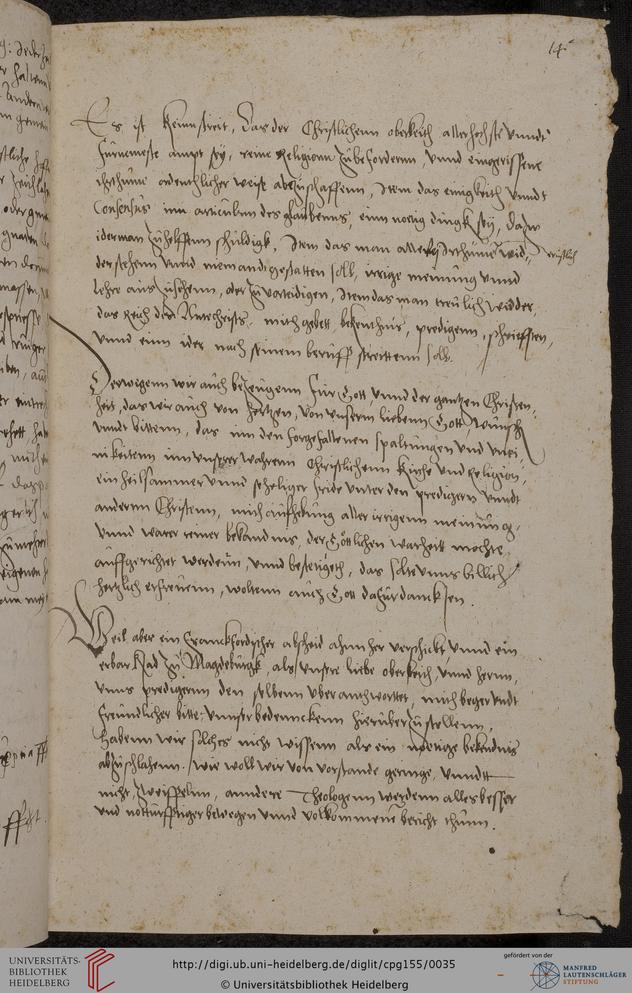 14
Es ist kein streit, das der Christlichenn oberkeith allerhochste vnndt
furnemeste ampt sey, reine Religionn zubefordernn, vnnd eingerissene
irthume ordenthlicher weise abzuschaffenn, Item das einigkeith vnndt
Consensus inn articulnn des glaubenns, einn notig dingk sey, dazu
iderman zu helffenn schuldigk, Item das man allen Irthume wid,
derstehenn vnnd niemandt gestatten soll, irrige meinung vnnd
lehre aus zuschenn, oder zuuorteidigen, Item das man treulich widder
das Reich des Antechrists, mith gebett, bekenthnus, predigenn, schriefften,
vnnd einn ider nach seinem beruff streittenn soll.
Derwegenn wir auch bezeugenn fur Gott vnnd der gantzen Christen,
heit, das wir auch von hertzen, von vnserm liebenn Gott, wunsch
vnndt bittenn, das inn den furgefallenen spaltungen vnd vnei,
nikeitenn inn vnserer wahrenn Christlichenn Kirche vnd Religion,
ein heilsammer vnnd seheliger fride vnter den predigern vnndt
anderm Christenn, mith auffhebung aller irrigenn meinung,
vnnd warer reiner bekandnus, der Gotlichen warheit mochte
auffgerichtet werdenn, vnnd bestetigeth, das solte vnns billich
hertzlich erfreuenn, woltenn auch Gott dafur dancksen.
Weil aber ein Franckfordischer abscheid ahnn her verschickt, vnnd ein
erbar Rad zu Magdeburgk, als vnsere liebe oberkeith, vnnd hernn,
vnns predigernn den selbenn vberanthwortet, mith beger vndt
freundlicher bitte, vnnser bedennckenn hieruber zustellenn,
Habenn wir solches nicht wissenn als ein nöetige bekendnis
abzuschlahenn. Wie woll wir von vorstande geringe, vnndt
nicht zweiffelnn, anndere Theologenn werdenn alles besser
vnd notturfftiger bewegen vnnd volkommene bericht thunn.
UNIVERSITÄTS-
BIBLIOTHEK
HEIDELBERG
http://digi.ub.uni-heidelberg.de/diglit/cpg155/0035
© Universitätsbibliothek Heidelberg
gefördert von der
MANFRED
LAUTENSCHLÄGER
STIFTUNG